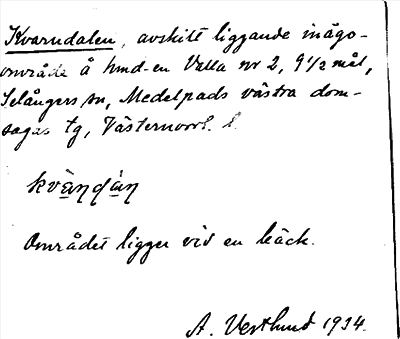 Kvarndalen, avskilt liggande inägo-
område å hmd-en Valla nr 2, 9 1/2 mål,
Selångers sn, Medelpads västra dom-
sagas tg, Västernorrl. l.
kvàṇḍàṇ
Området ligger vid en bäck.
A. Vestlund 1934.